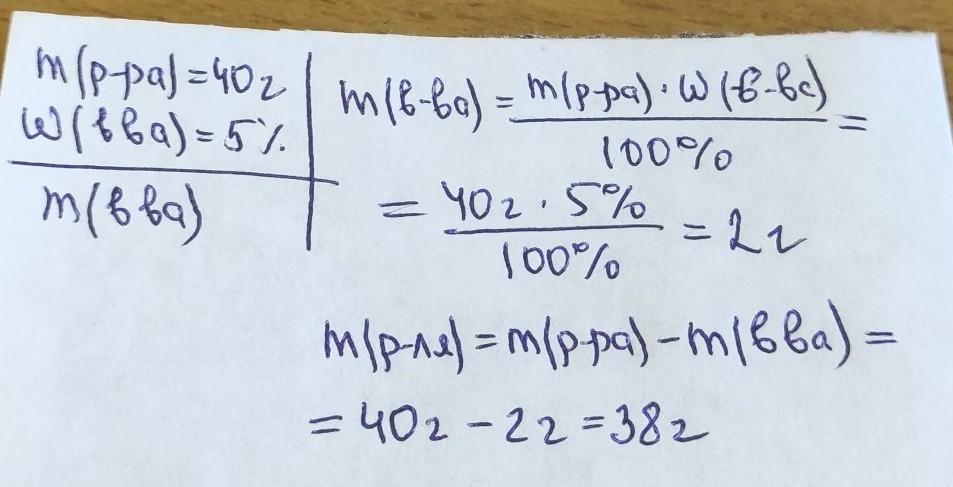 m(р-ра)=40г
W(вва)=5%
m(вва)
m(в-ва) = m(р-ра)·W(в-ва) / 100% =
= 40г · 5% / 100% = 2г
m(р-ля) = m(р-ра) - m(вва) =
= 40г - 2г = 38г